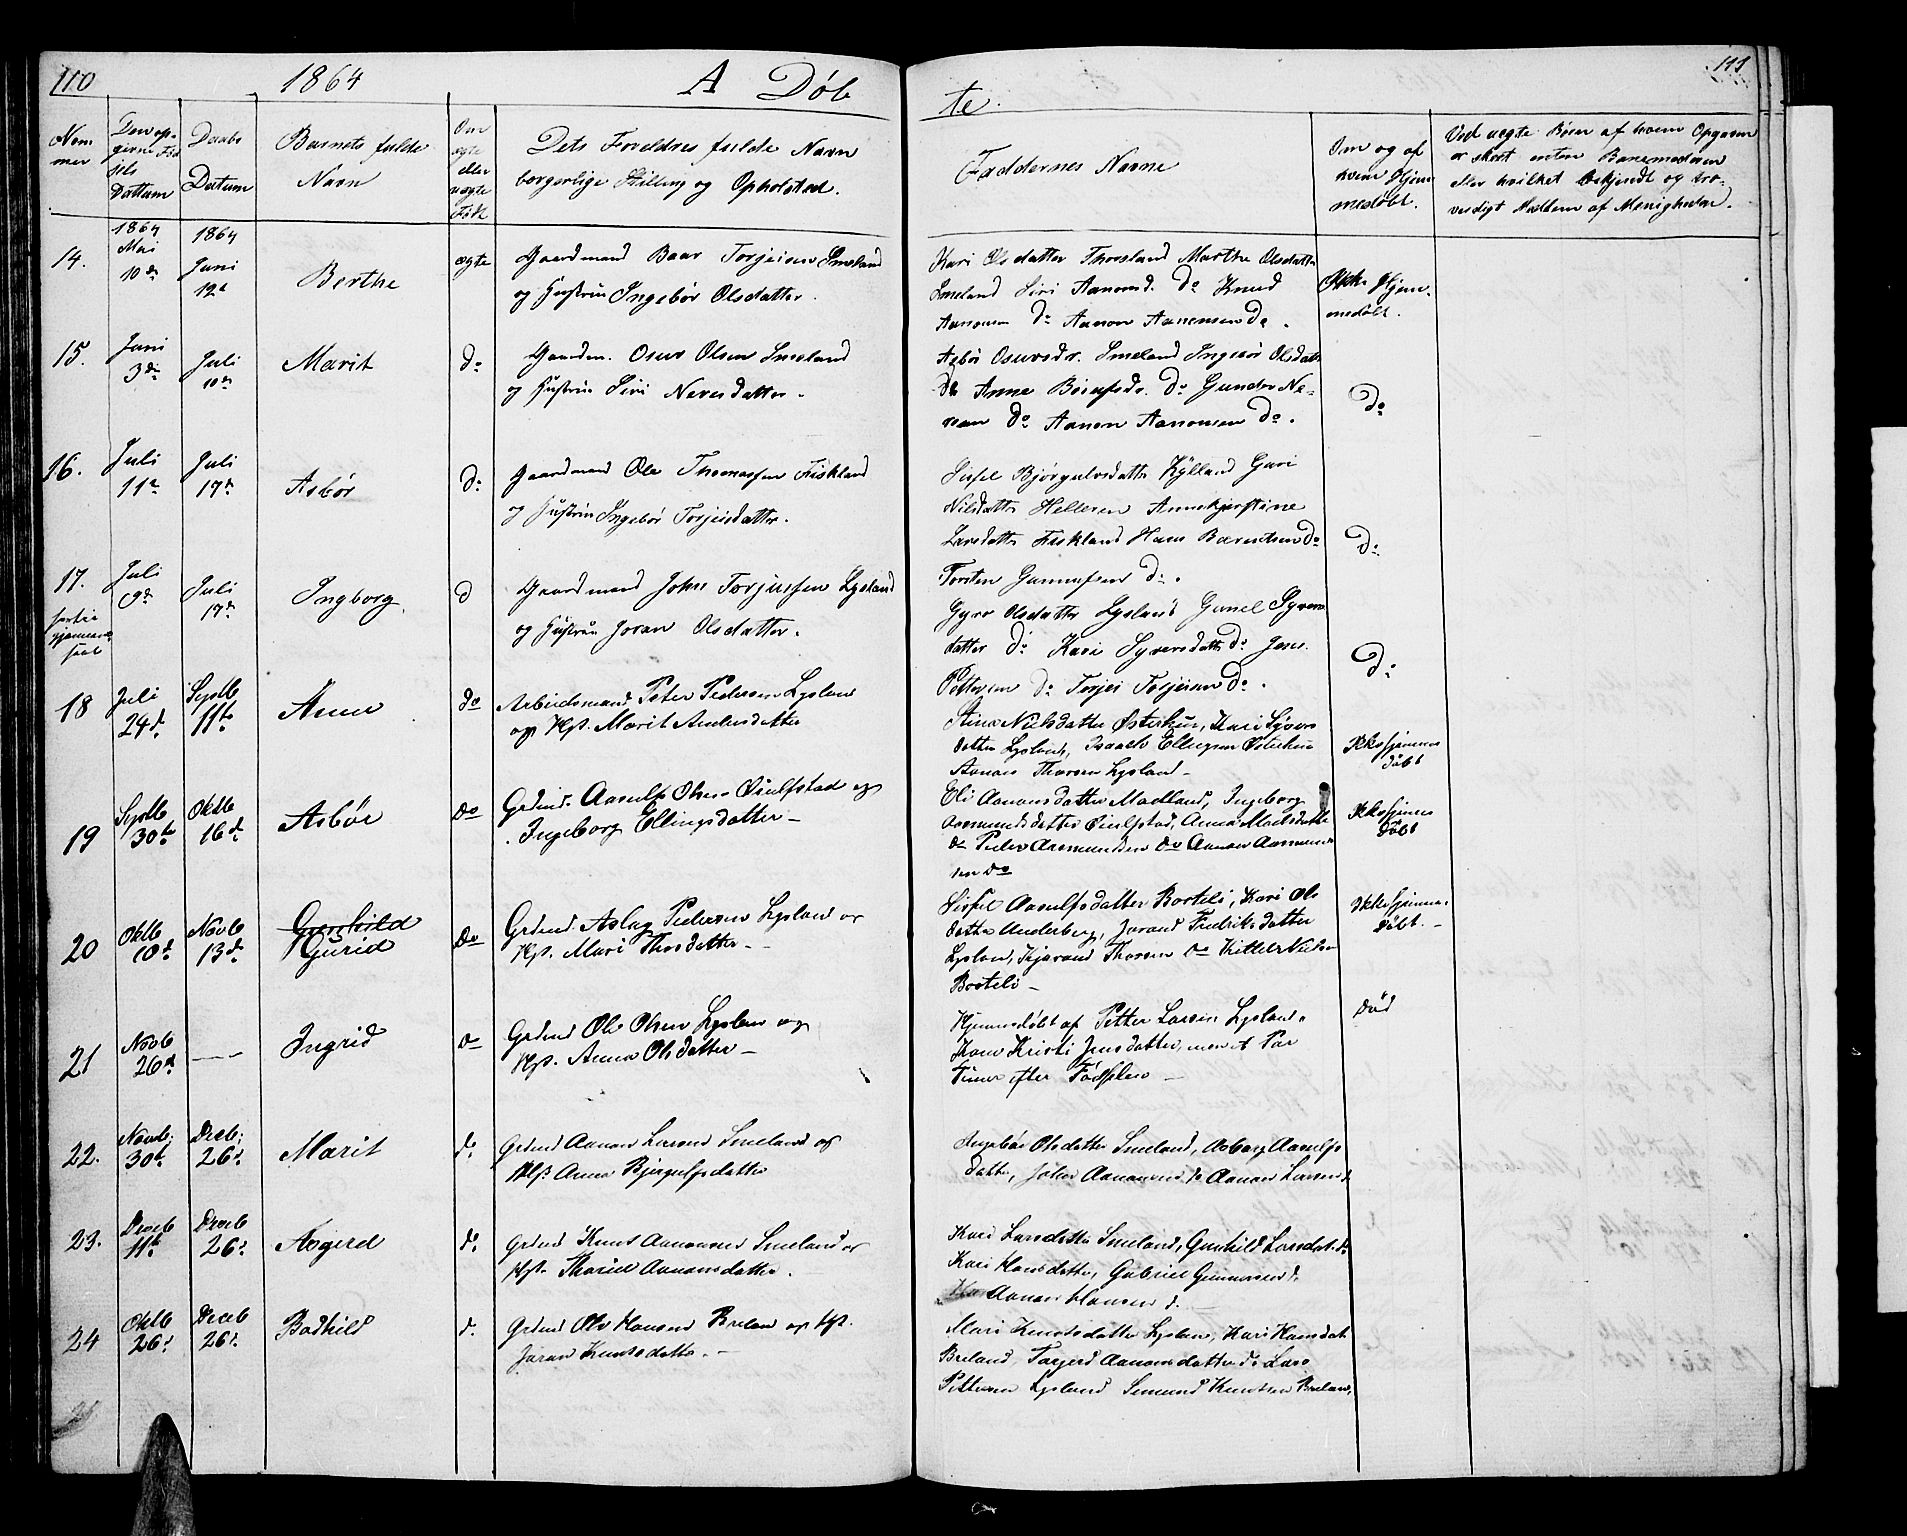 110 1864 A Døb
te. 111
Num
mer
Den op-
givne Fød
sels
Dattum
Daabs
Datum
Barnets fulde
Navn
Om
ægte
eller
uægte
Født
Dets Foreldres fulde Navn
borgerlige Stilling og Opholstad.
Faddernes Navne
Om og af
hvem Hjem
medøbt.
Ved uegte Børn af hvem Opgaven
er skeet enten Barnemoderen
eller hvilket bekjendt og tro-
verdigt Medlem af Menigheden.
14. 1864 Mai 10de 1864 Juni 12te Berthe ægte Gaardmand Baar Torjeisen Smeland
og Hustrue Ingebør Olsdatter.
Kari Olsdatter Thorsland Marthe Olsdatter
Smeland Siri Aanonsd. Do Knud
Aanonsen Do Aanon Aanensen Do.
Ikke Hjem-
medøbt.
15. Juni 3die Juli 10de Marit Do Gaardm. Osuv Olsen Smeland
og Hustrue Siri Neresdatter.
Asbør Osuvsdr. Smeland Ingebør Olsdatt
Do Anne Do Gunder Ne-
Do Aanon Aanonsen Do.
Do
16. Juli 11te Juli 17de Asbør Do Gaardmand Ole Thomassen Fiskland
og Hustrue Ingebør Torjeisdatter.
Sissel Bjørgulvsdatter Kylland Guri
Nilsdatter Helleren Annekjerstine
Larsdatter Fiskland Hans Berentsen Do
Torsten Gunnufsen Do.
Do
17. Juli 9de Juli 17de Ingborg D Gaardmand John Torjussen Lysland
og Hustrue Joran Olsdatter.
Gyro Olsdatter Lysland Gunel Syvers
datter Do Kari Syversdatter Do Jens
Pettersen Do Torjei Torjeisen Do.
Do
18 Juli 24d. Septb 11te Anne Do Arbeidsmand Peter Pedersen Lyslan
og Hst. Marit Andersdatter
Stine Nielsdatter Østerhus, Kari Syvers
datter Lysland, Isaach Ellingsen Østerhus
Aanon Thorsen Lysland
Ikke hjemme
døbt
19 Septb 30te Oktb 16d. Asbør Do Grdmd. Aasulf Olsen Øiulfstad og
Ingeborg Ellingsdatter
Eli Aanonsdatter Madland, Ingeborg
Aasmundsdatter Øiulfstad, Anna
Do Peder Aasmundsen Do Aanon Aasmund
sen Do
Ikke hjemme
døbt
20 Oktb 10d. Novb 13d. Gunhild
Gurid Do Grdmd. Aslag Pedersen Lyslan og
Hst. Mari Thorsdatter
Sissel Aasulfsdatter Borteli, Kari Ols
datter Underberg, Jorand Fredriksdatter
Lyslan, Kjærand Thorsen Do Kittel Nielsen
Borteli
Ikke hjemme
døbt.
21 Novb 26d. Ingrid Do Grdmd Ole Olsen Lyslan og
Hst. Anna Olsdatter
Hjemmedøbt af Petter Larsen Lyslands
Kone Kristi Jensdatter, men et Par
Timer efter Fødselen
død
22. Novb. 30te Decb. 26d. Marit do. Grdmd Aanon Larsen Smeland og
Hst. Anna Bjørgulfsdatter
Ingebør Olsdatter Smeland, Asborg Aasulfs
datter, John Aanonsen do Aanon Larsen do
23. Deceb 11te Deceb 26d. Asgerd do. Grdmd Knut Aanonsen Smeland og
Hst. Aanonsdatter.
Kari Larsdatter Smeland, Gunhild Larsdat. do
Kari Hansdatter, Gabriel Gunnarsen d.
Aanon Hansen d.
24 Oktb 26d. Deceb 26d. Bodhild d. Grdmd Ole Hansen Breland og Hst.
Joran Knutsdatter.
Mari Knutsdatter Lyslan, Kari Hansdat
Breland, Torgerd Aanonsdatter do Lars
Pettersen Lysland Simund Knutsen Breland,